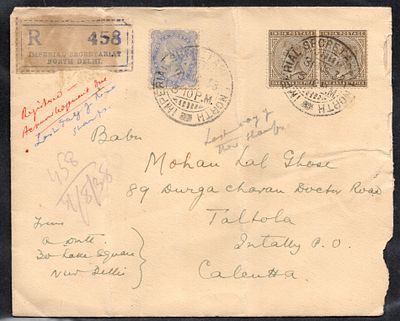 R 458
IMPERIAL SECRETARIAT
NORTH DELHI.
INDIA POSTAGE INDIA POSTAGE
IMPERIAL SECRETARIAT NORTH
10 P.M.
IMPERIAL SECRETARIAT NORTH
Registered
Acknowledgment due
Last day of
stamps.
Last day of
stamps.
458
Babu
Mohan Lal Ghose
89 Durga Charan Doctor Road
Taltola
Intally P.O.
Calcutta.
From
A Dutt.
30 Lake Square
New Delhi